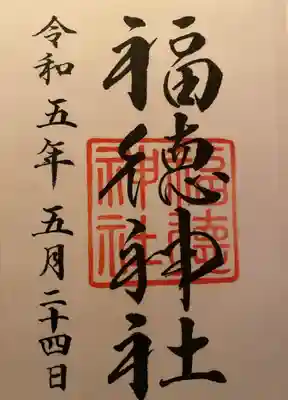 福徳神社
福徳
神社
令和五年 五月二十四日